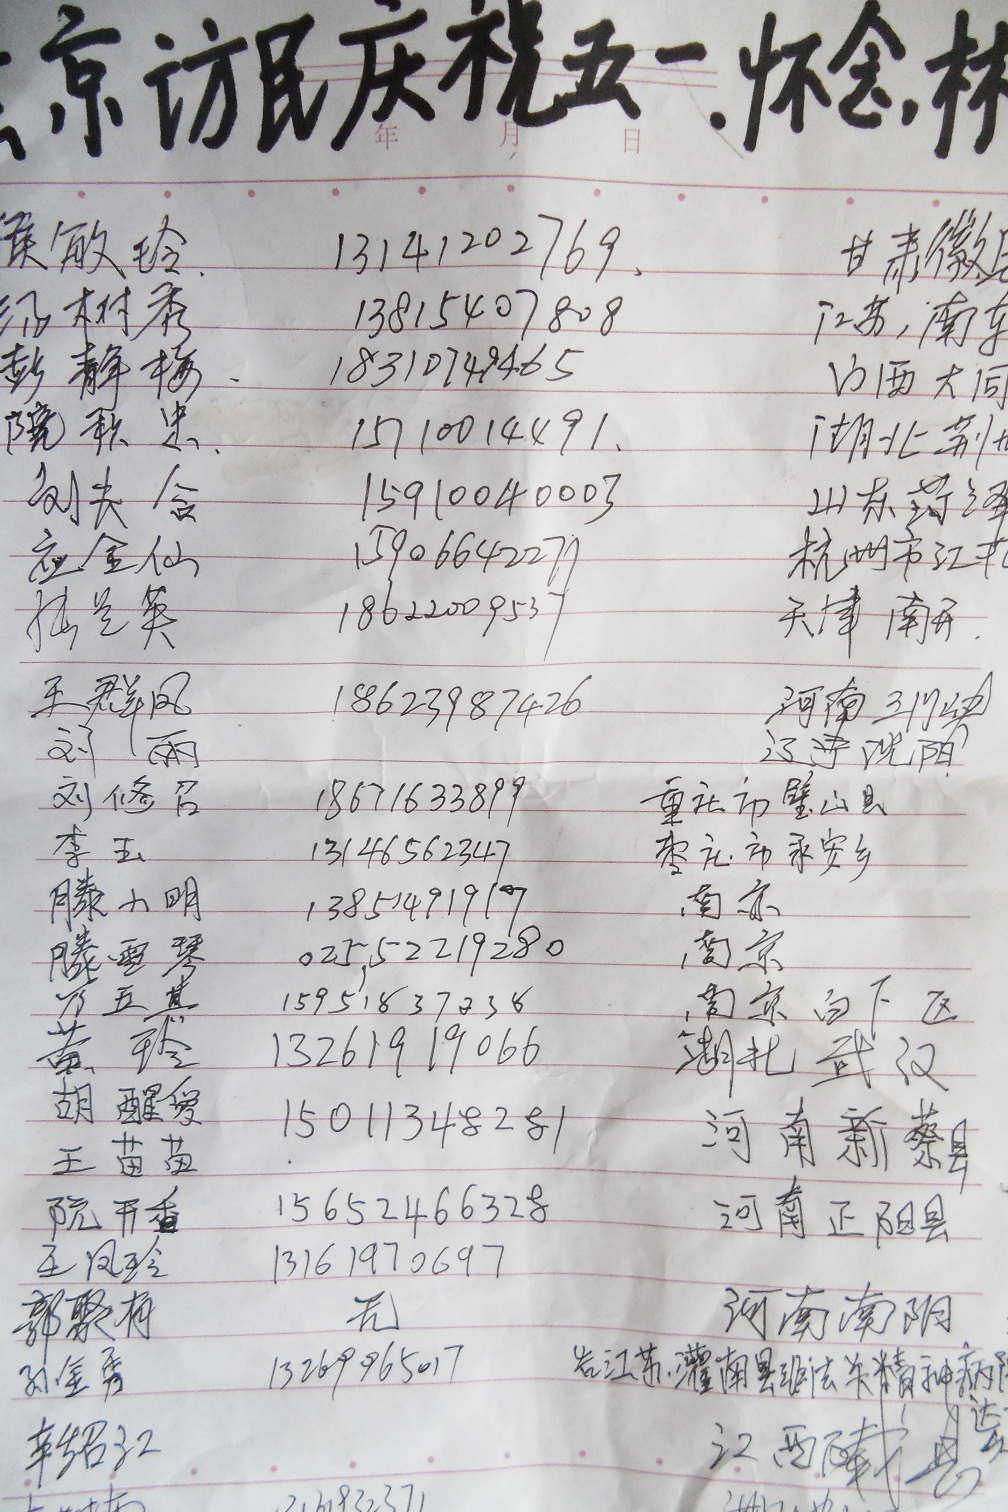 京访民庆祝五一.怀念,林
年 月 日
侯敏玲. 13141202769. 甘肃徽县
村秀 13815407808 江苏,南京
彭静梅. 18310749465 山西大同
院秋忠. 15710014491. 湖北荆州
刘夫含 15910040003 山东菏泽
应金仙 15906642277 杭州市江干
英 18622009537 天津南开.
王群风 18623987426 河南三门峡
刘雨 辽宁沈阳
刘修名 18671633899 重庆市璧山县
李玉 13146562347 枣庄市永安乡
滕小明 13851491917 南京
滕雪琴 025,52219280 南京
五其 15951837238 南京白下区
黄玲 13261919066 湖北武汉
胡醒爱 15011348281 河南新蔡县
王苗苗
阮开香 15652466328 河南正阳县
王凤玲 13161970697
郭聚有 无 河南南阴
孙金秀 13269965017 江苏.灌南县非法关精神病院
辛绍江 江西 县